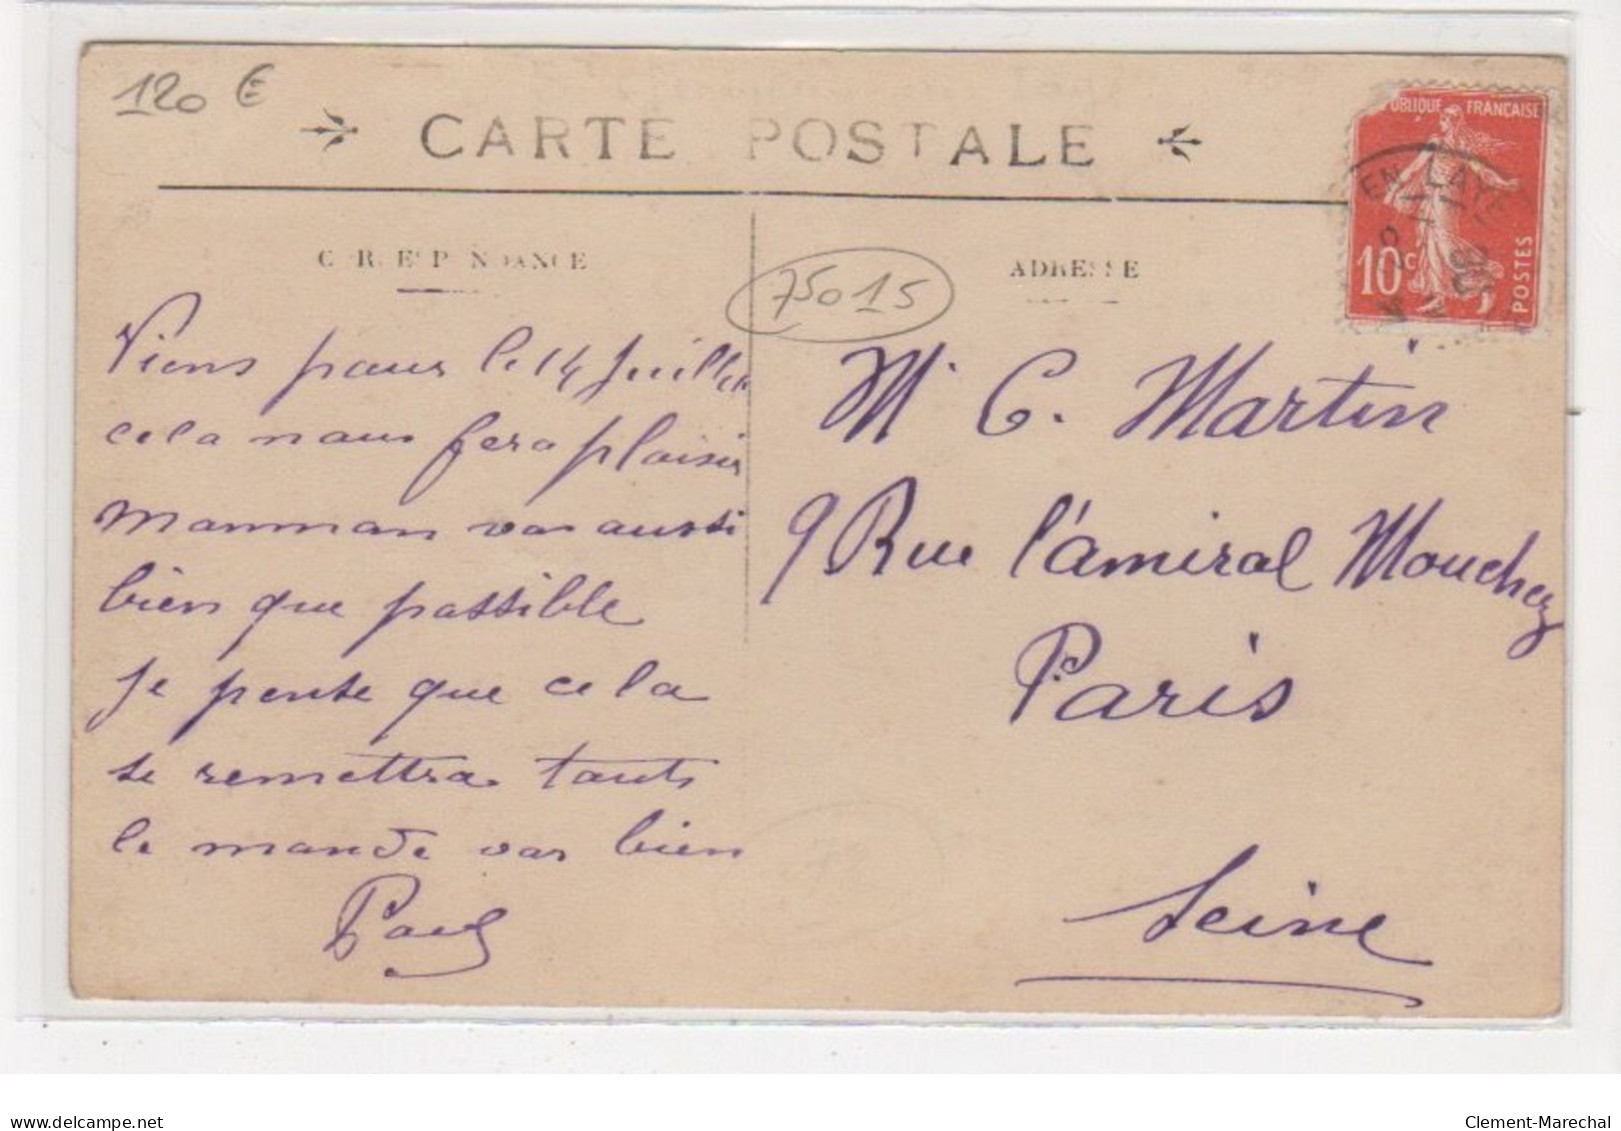 120 €
CARTE POSTALE
RÉPUBLIQUE FRANÇAISE
EN LAYE
10c
POSTES
CORRESPONDANCE
75015
ADRESSE
Viens pour le 14 Juillet
cela nous fera plaisir
Manman vas aussi
bien que possible
je pense que cela
se remettra touts
le monde vas bien
Paul
Mr C. Martin
9 Rue l'amiral Mouchez
Paris
Seine
www.delcampe.net
Clement-Marechal